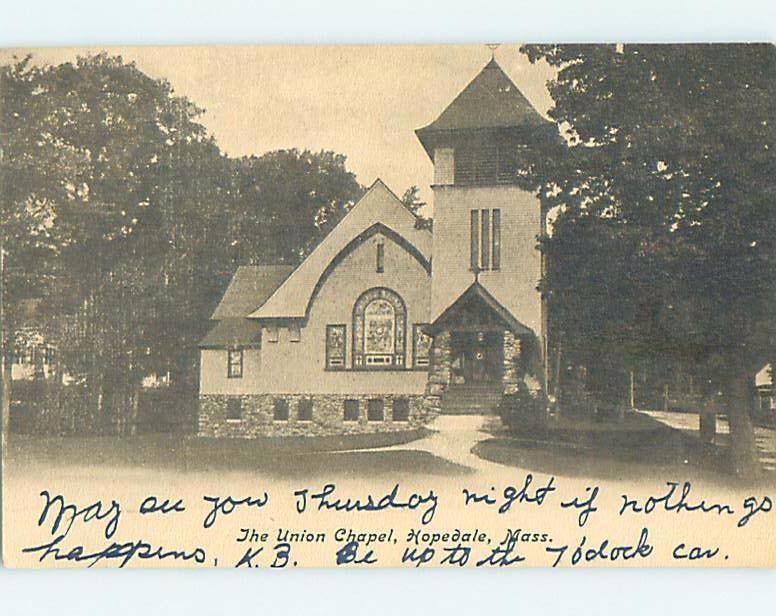 May see you Thursday night if nothings
The Union Chapel, Hopedale, Mass.
happens, K.B. Be up to the 7 o'clock car.